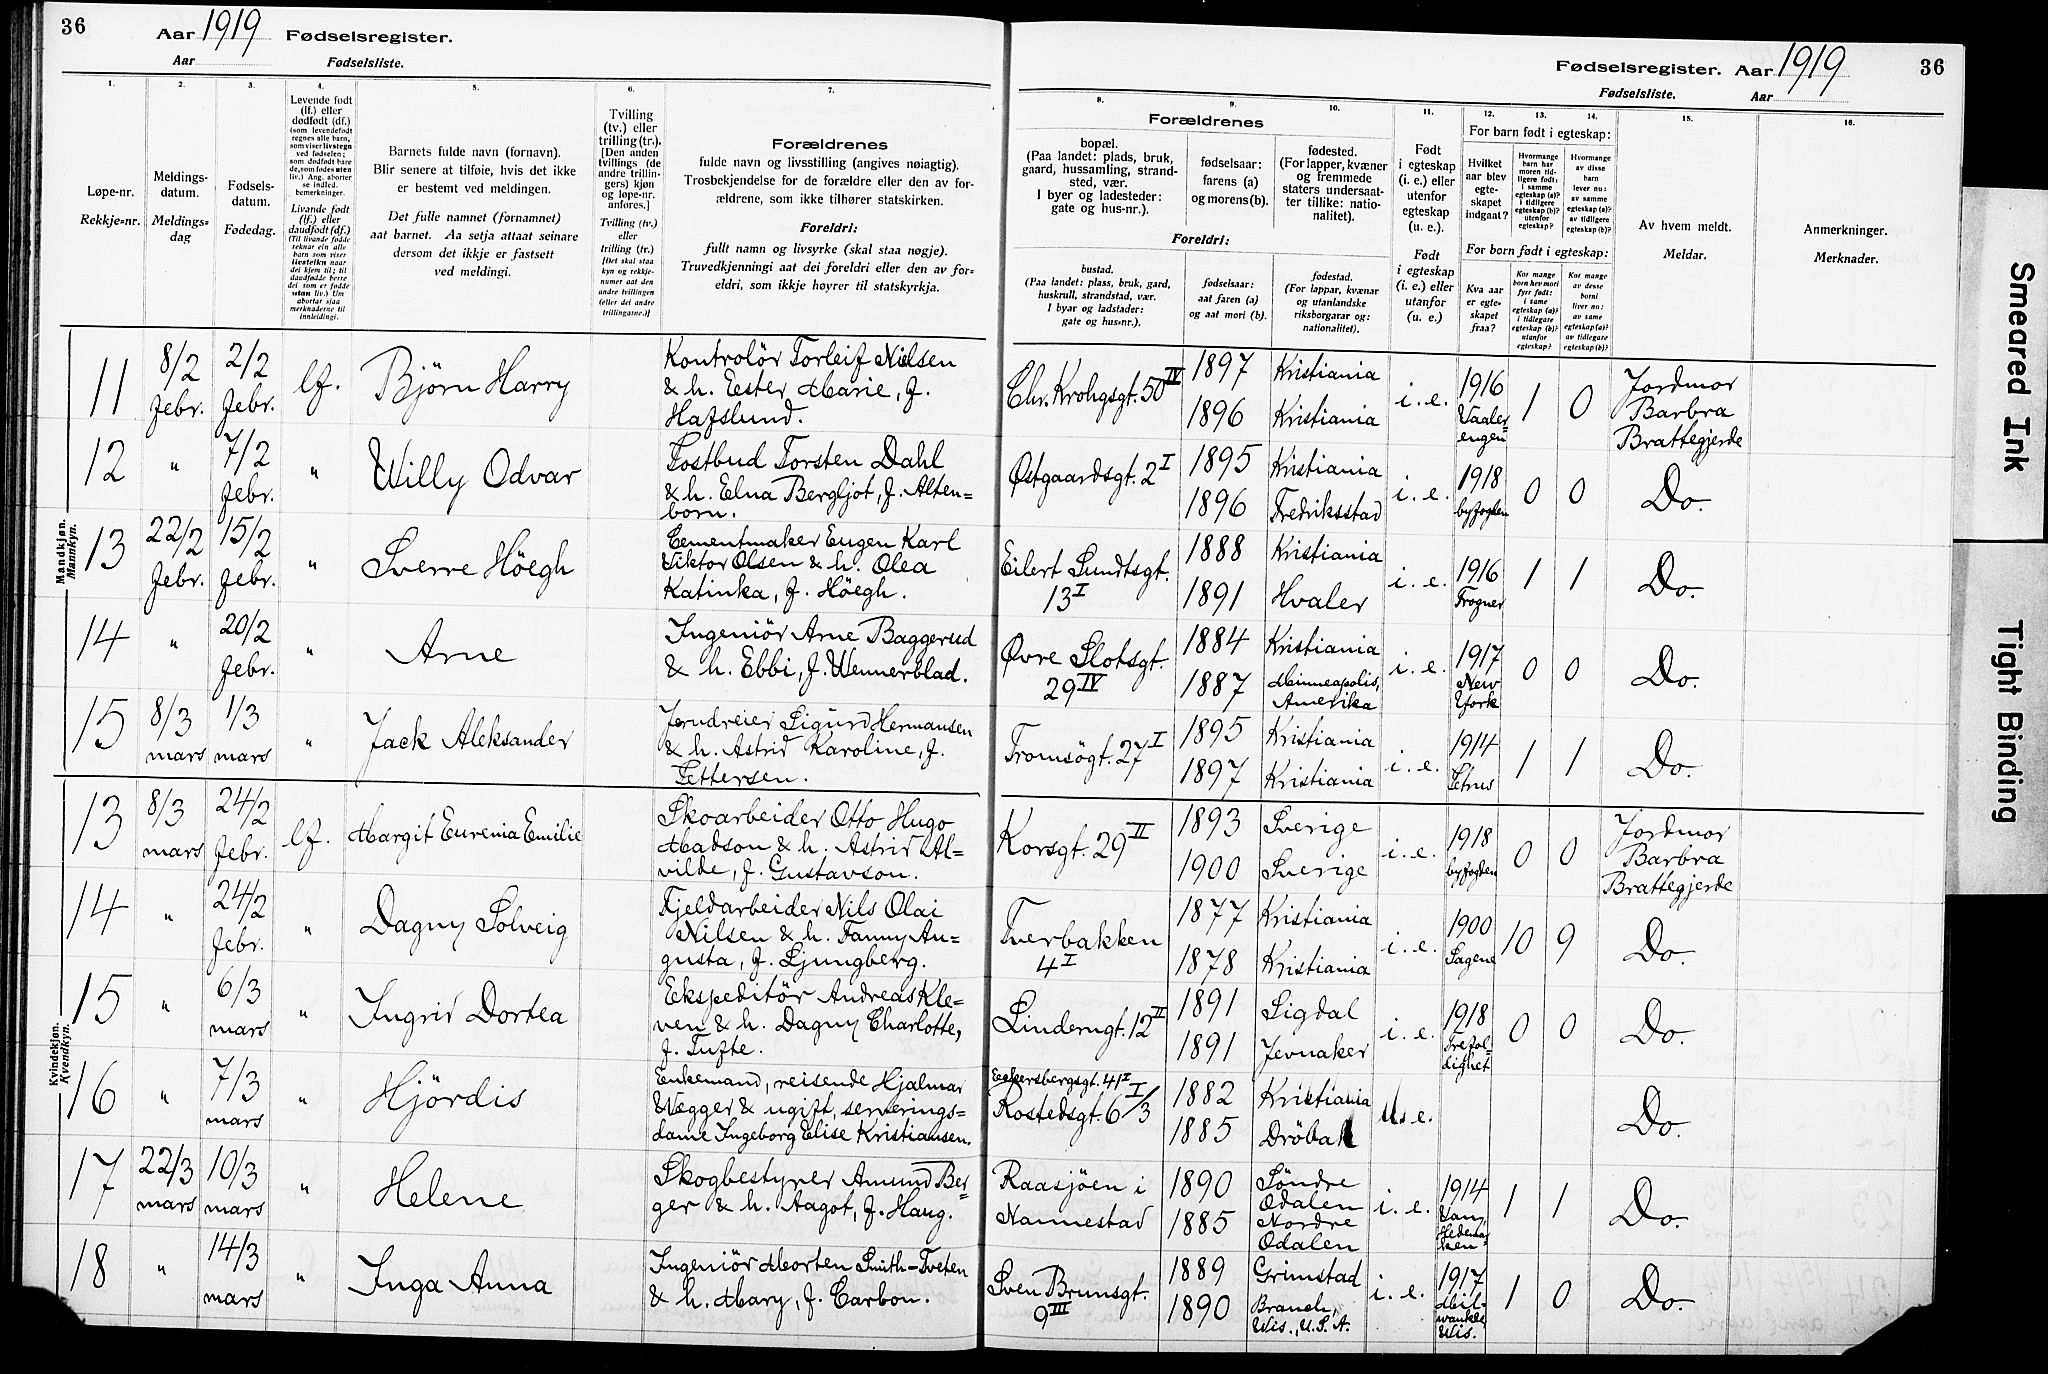 36
Aar 1919 Fødselsregister.
Aar Fødselsliste.
Fødselsregister. Aar 1919
36
Fødselsliste. Aar
1.
Løpe-nr.
Rekkje=nr.
2.
Meldings-
datum.
Meldings=
dag
3.
Fødsels-
datum.
Fødedag.
4.
Levende født
(lf.) eller
dødfødt (df.)
(som levendefødt
regnes alle barn,
som viser livstegn
ved fødselen;
som dødfødt bare
de, som fødes uten
liv.) Ang. aborter
se indled.
bemerkninger.
Livande fødd
(lf.) eller
daudfødt (df.)
(Til livande fødde
reknar ein alle
barn som viser
livsteikn naar
dei kjem til; til
daudfødde berre
dei som er fødde
utan liv.) Um
abortar sjaa
merknaderne til
innleidingi.
5.
Barnets fulde navn (fornavn).
Blir senere at tilføie, hvis det ikke
er bestemt ved meldingen.
Det fulle namnet (fornamnet)
aat barnet. Aa setja attaat seinare
dersom det ikkje er fastsett
ved meldingi.
6.
Tvilling
(tv.) eller
trilling (tr.).
[Den anden
tvillings (de
andre trillin-
gers) kjøn
og løpe-nr.
anføres.]
Tvilling (tv.)
eller
trilling (tr.)
[Det skal staa
kyn og rekkje-
numer aat den
andre tvillingen
(eller dei andre
trillingarne.)]
7.
Forældrenes
fulde navn og livsstilling (angives nøiagtig).
Trosbekjendelse for de forældre eller den av for-
ældrene, som ikke tilhører statskirken.
Foreldri:
fullt namn og livsyrke (skal staa nøgje).
Truvedkjenningi aat dei foreldri eller den av for=
eldri, som ikkje høyrer til statskyrkja.
8.
Forældrenes
bopæl.
(Paa landet: plads, bruk,
gaard, hussamling, strand-
sted, vær.
I byer og ladesteder:
gate og hus-nr.).
Foreldri:
bustad.
(Paa landet: plass, bruk, gard,
huskrull, strandstad, vær.
I byar og ladstader:
gate og hus=nr.).
9.
fødselsaar:
farens (a)
og morens (b).
fødselsaar:
aat faren (a)
og aat mori (b).
10.
fødested.
(For lapper, kvæner
og fremmede
staters undersaat-
ter tillike: natio-
nalitet).
fødestad.
(For lappar, kvænar
og utanlandske
riksborgarar og:
nationalitet).
11.
Født
i egteskap
(i. e.) eller
utenfor
egteskap
(u. e.).
Født
i egteskap
(i. e.) eller
utanfor
(u. e.)
12.
13.
14.
For barn født i egteskap:
Hvilket
aar blev
egte-
skapet
indgaat?
Hvormange
barn har
moren tid-
ligere født:
i samme
egteskap (a)?
i tidligere
egteskap (b)?
utenfor
egteskap?
Hvormange
av disse
barn
lever nu:
av samme
egteskap (a)?
av tidligere
egteskap (b)?
For born født i egteskap:
Kva aar
er egte-
skapet
fraa?
Kor mange
born hev mori
fyrr født:
i same
egteskap (a)?
i tidlegare
egteskap (b)?
utanfor
egteskap?
Kor mange
av desse
borni
liver no:
av same
egteskap (a)?
av tidlegare
egteskap (b)?
15.
Av hvem meldt.
Meldar.
16.
Anmerkninger.
Merknader.
Mandkjøn.
Mannkyn.
11 8/2 febr. 2/2 febr. lf. Björn Harry
Kontrolör Torleif Nielsen
& h. Ester Marie, f.
Hafslund.
Chr. Krohgsgt. 50 IV
1897 Kristiania
1896 Kristiania
i. e. 1916 Vaaler=engen 1 0
Jordmor
Barbra
Brattegjerde
12 " 7/2 febr. " Willy Odvar
Postbud Torsten Dahl
& h. Elna Bergljot, f. Alten=
born.
Østgaardsgt. 2 I
1895 Kristiania
1896 Fredriksstad
i. e. 1918 byfogden 0 0 Do.
13 22/2 febr. 15/2 febr. " Sverre Höegh
Cementmaker Eugen Karl
Viktor Olsen & h. Olea
Katinka, f. Höegh.
Eilert Sundtsgt.
13 I
1888 Kristiania
1891 Hvaler
i. e. 1916 Frogner 1 1 Do.
14 " 20/2 febr. " Arne
Ingeniör Arne Baggerud
& h. Ebbi, f. Wennerblad.
Øvre Slotsgt.
29 IV
1884 Kristiania
1887 Minneapolis, Amerika
i. e. 1917 New York 0 0 Do.
15 8/3 mars 1/3 mars " Jack Aleksander
Jerndreier Sigurd Hermansen
& h. Astrid Karoline, f.
Pettersen.
Tromsögt. 27 I
1895 Kristiania
1897 Kristiania
i. e. 1914 Petrus 1 1 Do.
Kvindekjøn.
Kvendkyn.
13 8/3 mars 24/2 febr. lf. Margit Eurenia Emilie
Skoarbeider Otto Hugo
Madson & h. Astrid Al=
vilde, f. Gustavson.
Korsgt. 29 II
1893 Sverige
1900 Sverige
i. e. 1918 byfogden 0 0
Jordmor
Barbra
Brattegjerde
14 " 24/2 febr. " Dagny Solveig
Fjeldarbeider Nils Olai
Nilsen & h. Fanny Au=
gusta, f. Ljungberg.
Tverbakken
4 I
1877 Kristiania
1878 Kristiania
i. e. 1900 Sagene 10 9 Do.
15 " 6/3 mars " Ingrid Dortea
Ekspeditör Andreas Kle=
ven & h. Dagny Charlotte,
f. Tufte.
Linderngt. 12 II
1891 Sigdal
1891 Jevnaker
i. e. 1918 Trefol=dighet 0 0 Do.
16 " 7/3 mars " Hjördis
Enkemand, reisende Hjalmar
Wegger & ugift, serverings=
dame Ingeborg Elise Kristiansen.
Eckersbergsgt. 41 I
Rostedsgt. 6 I/3
1882 Kristiania
1885 Dröbak
u. e. Do.
17 22/3 mars 10/3 mars " Helene
Skogbestyrer Amund Ber=
ger & h. Aagot, f. Haug.
Raasjöen i
Nannestad
1890 Søndre Odalen
1885 Nordre Odalen
i. e. 1914 Vang, Hedemarken 1 1 Do.
18 " 14/3 mars " Inga Anna
Ingeniör Morten Smith-Tveten
& h. Mary, f. Carbon.
Sven Brunsgt.
9 III
1889 Grimstad
1890 Branch, Wis., U.S.A.
i. e. 1917 Milwaukee Wis. 1 0 Do.
Smeared Ink
Tight Binding